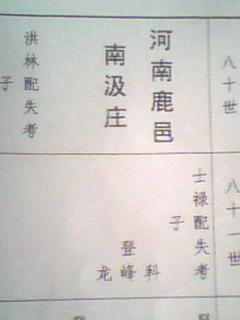 八十世
河南鹿邑
南汲庄
洪林配失考
子
八十一世
士禄配失考
子
科
登峰
龙